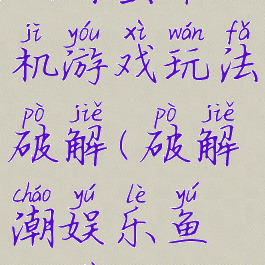 jī yóu xì wán fǎ
机游戏玩法
pò jiě pò jiě
破解(破解
cháo yú lè yú
潮娱乐鱼